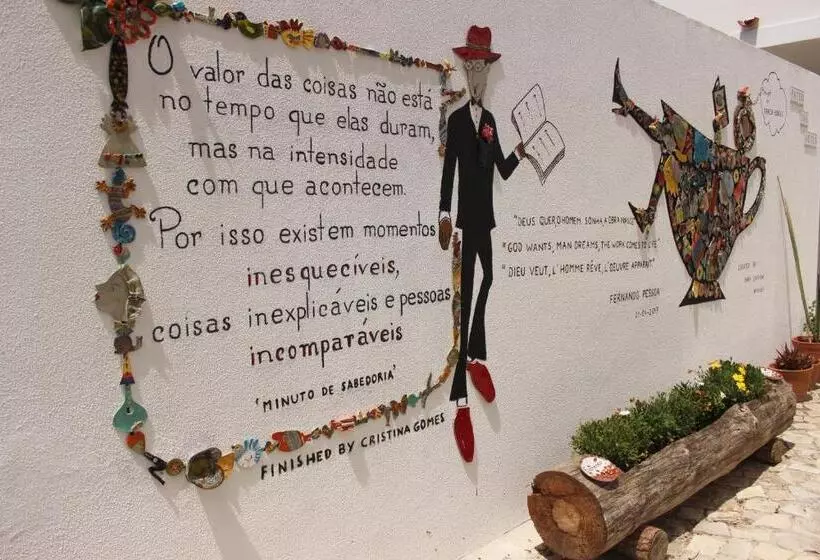 O valor das coisas não está
no tempo que elas duram,
mas na intensidade
com que acontecem.
Por isso existem momentos
inesquecíveis,
coisas inexplicáveis e pessoas
incomparáveis
'MINUTO DE SABEDORIA'
FINISHED BY CRISTINA GOMES
"DEUS QUER, O HOMEM SONHA, A OBRA NASCE"
"GOD WANTS, MAN DREAMS, THE WORK COMES TO LIFE"
"DIEU VEUT, L'HOMME RÊVE, L'OEUVRE APPARAIT"
FERNANDO PESSOA
CREATED BY